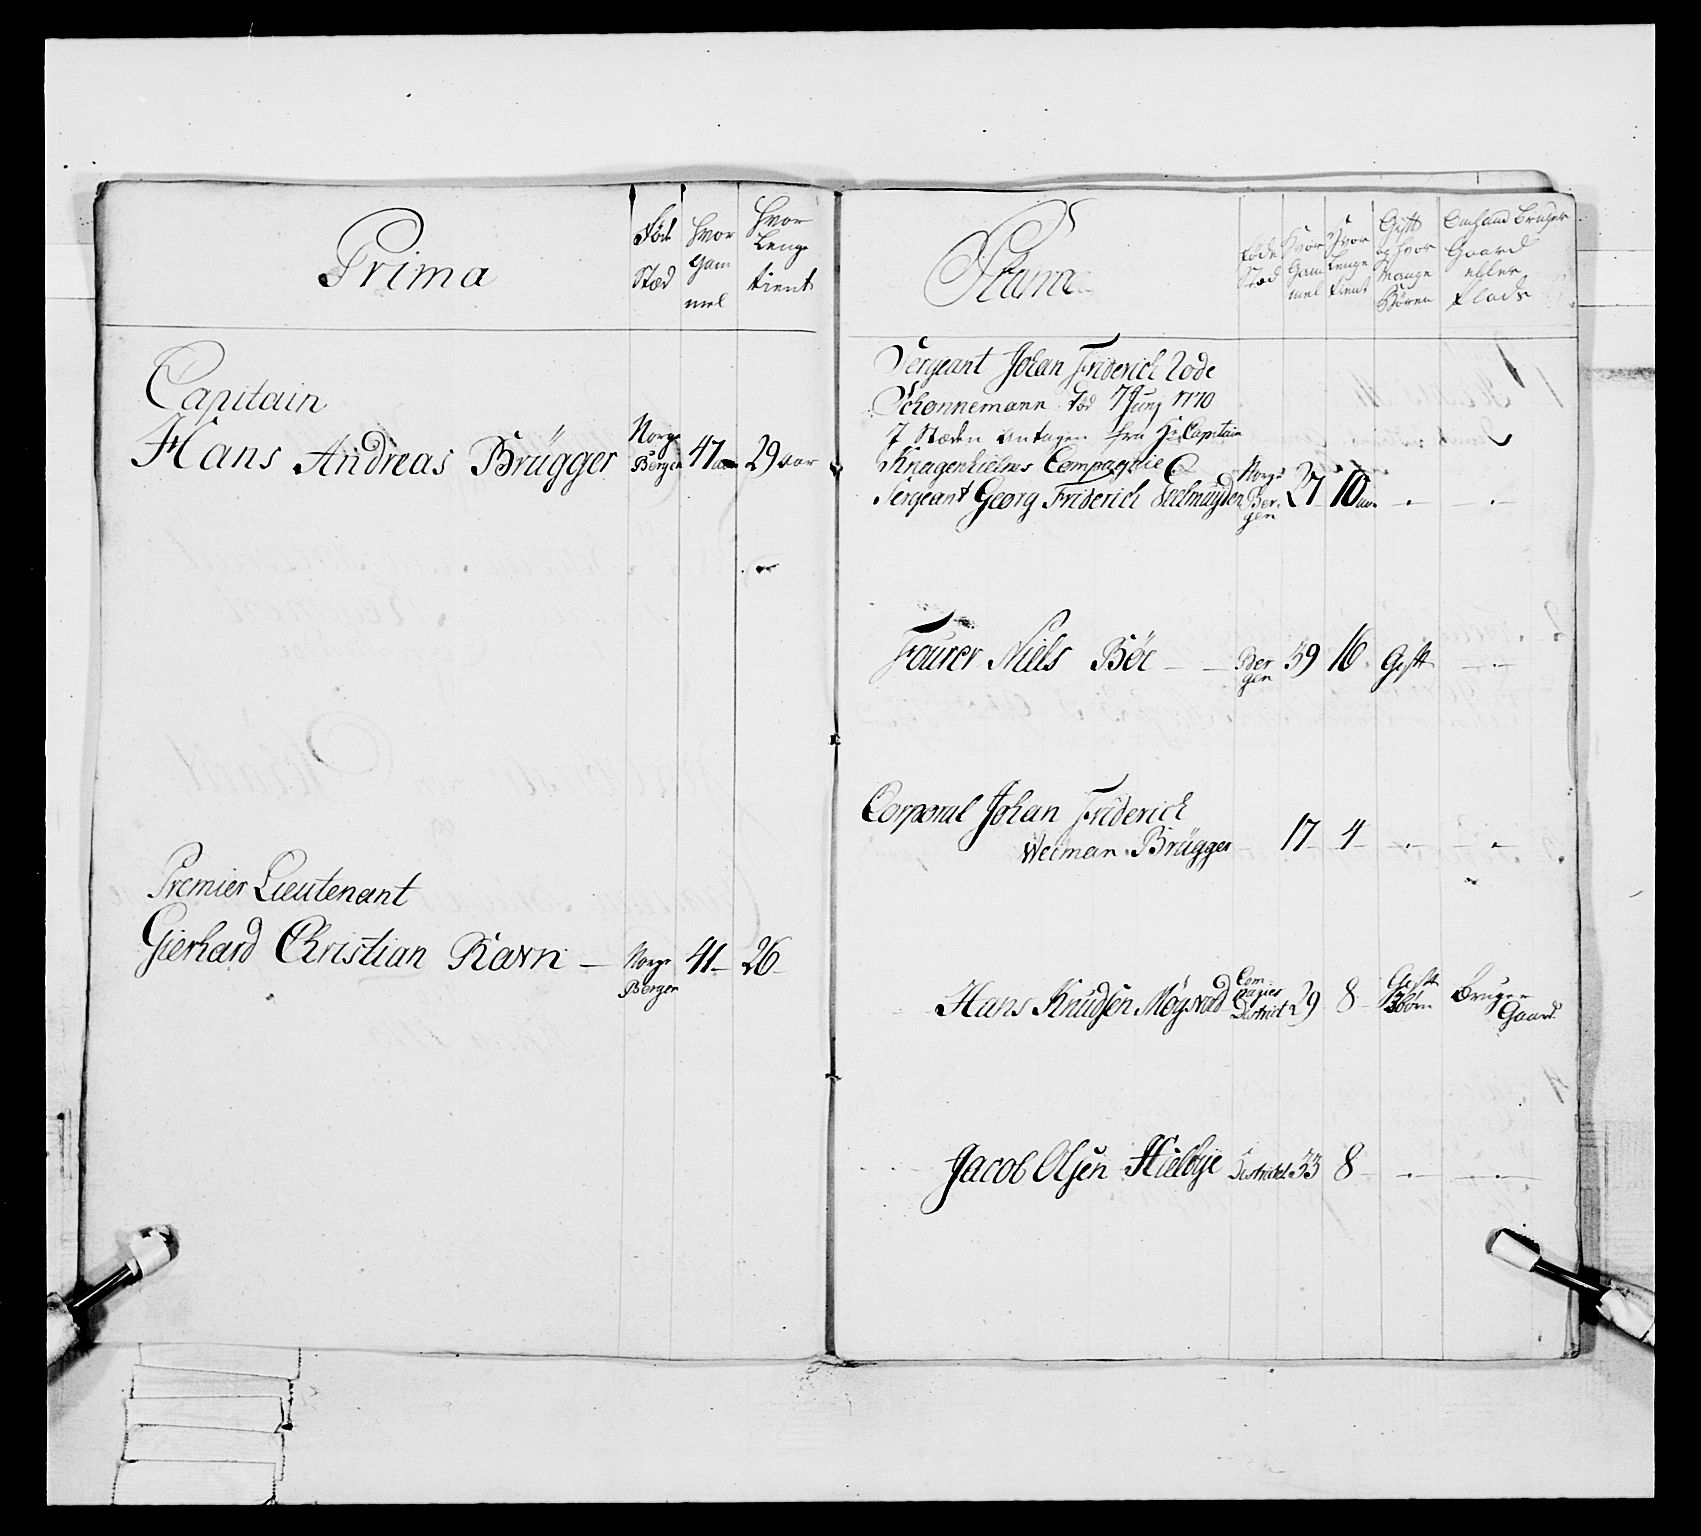 Prima
Fød
Stæd
hvor
gam
mel
hvor
Lenge
tient
Capitain
Hans Andreas Brügger
Norge
Bergen
47 aar
29 aar
Premier Lieutenant
Gierhard Christian Ravn
Norge
Bergen
41
26
føde
Stæd
Hvor
Gam
mel
Hvor
Lenge
tient
Gift
og hvor
Mange
Børen
Gaard
eller
Plads
Sergeant Johan Friderich
Schønnemann død 7 Junj 1770
I Stæden antagen fra Capitain
Knagenhielms Compagnie
Sergeant Georg Friderich
Norge
Ber
gen
27
10 aar
Fourer Niels Böe
Ber
gen
39
16
Gift
Corporal Johan Friderich
Weiman Brügger
17
4
Hans Knudsen
Com
pagies
District
29
8
Gift
Børn
Bruger
Gaard
Jacob Olsen
District
33
8